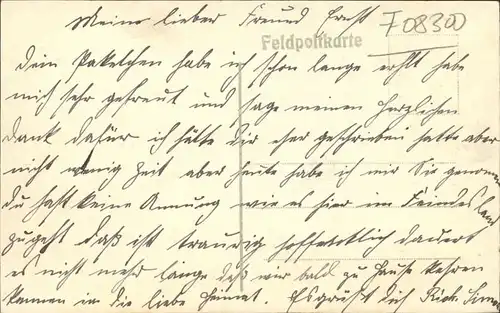 Meine lieber Freund Ernst
F0830
Feldpostkarte
Dein Paketchen habe ich schon lange erhlt habe
mich sehr gefreut und sage meinen herzlichen
Dank dafür ich hätte dir eher geschrieben hatte aber
nicht wenig Zeit aber heute habe ich mir Sie genomen
du hast keine Annung wie es hier im Feindesland
zugeht daß ist traurig hoffentlich dauert
es nicht mehr lange daß wir bald zu Hause kehren
kannen in die liebe Heimat. Es grüßt dich Rich.